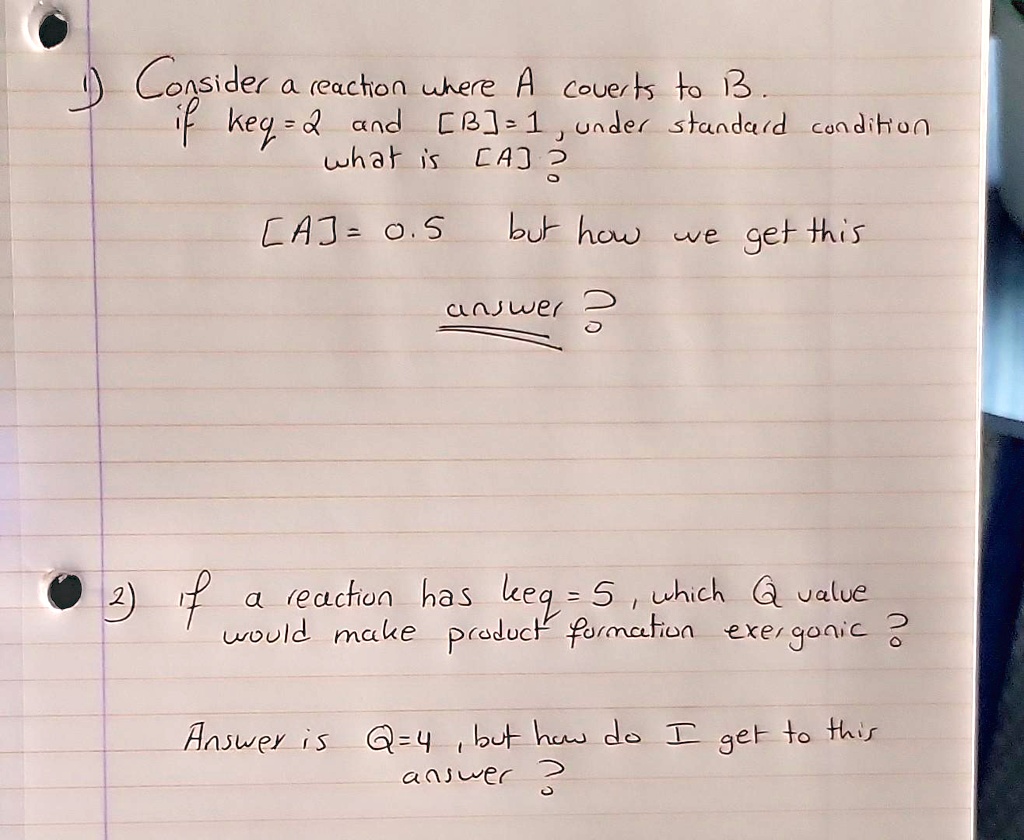 1) Consider a reaction where A coverts to B.
if keq = 2 and [B] = 1, under standard condition
what is [A] ?
[A] = 0.5 but how we get this
answer ?
2) if a reaction has keq = 5, which Q value
would make product formation exergonic ?
Answer is Q=4, but how do I get to this
answer ?